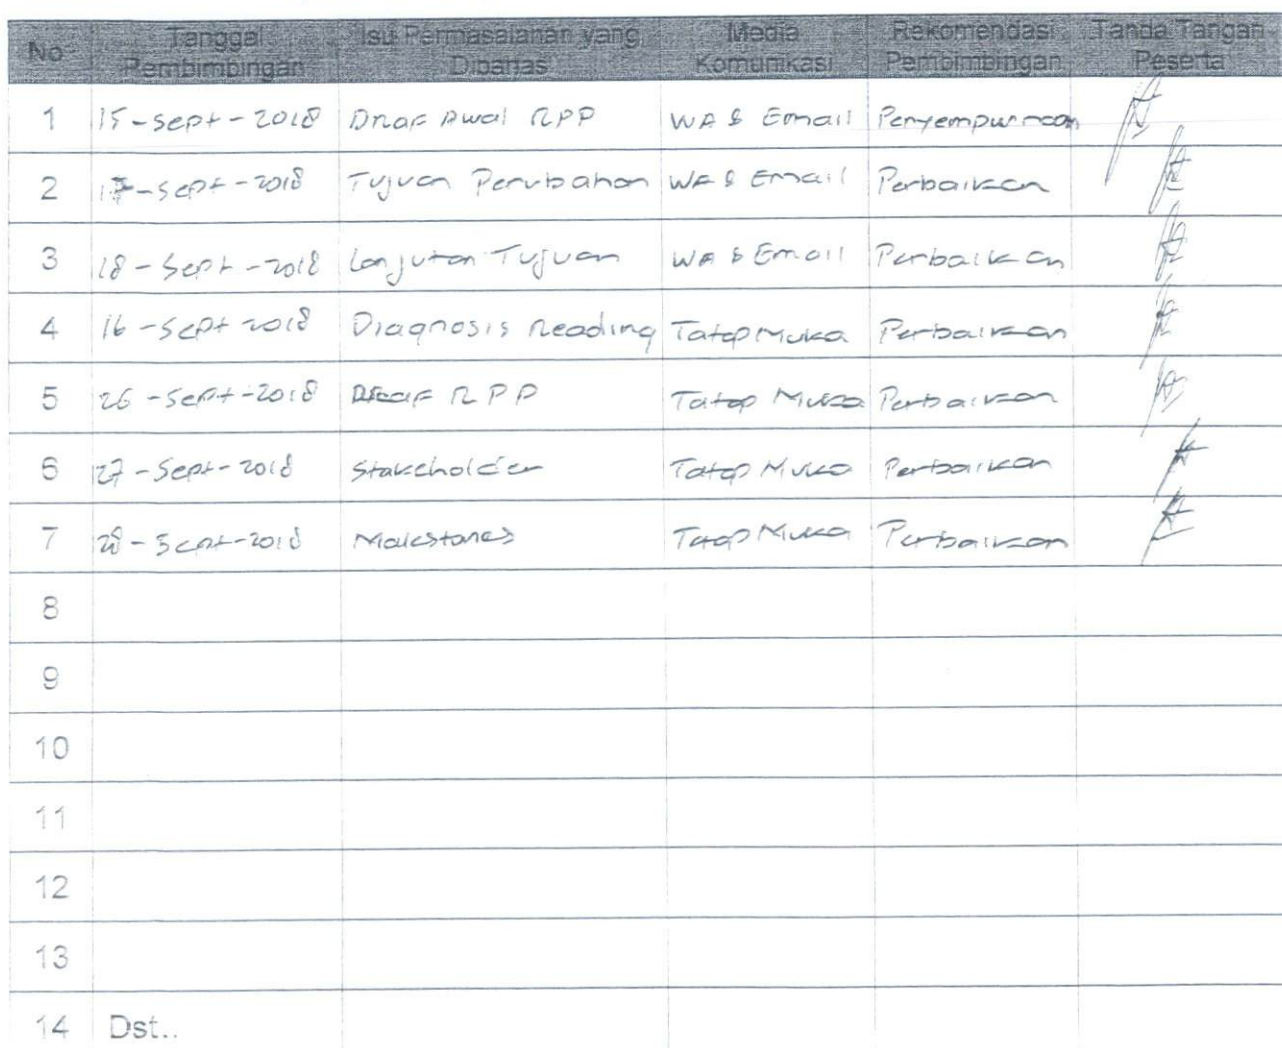 No Tanggal Pembimbingan Isu Permasalahan yang Dibahas Media Komunikasi Rekomendasi Pembimbingan Tanda Tangan Peserta
1 15-Sept-2018 Draf Awal RPP WA & Email Penyempurnaan
2 17-Sept-2018 Tujuan Perubahan WA & Email Perbaikan
3 18-Sept-2018 Lanjutan Tujuan WA & Email Perbaikan
4 16-Sept 2018 Diagnosis Reading Tatap Muka Perbaikan
5 26-Sept-2018 Draf RPP Tatap Muka Perbaikan
6 27-Sept-2018 Stakeholder Tatap Muka Perbaikan
7 28-Sept-2018 Malestones Tatap Muka Perbaikan
8
9
10
11
12
13
14 Dst..